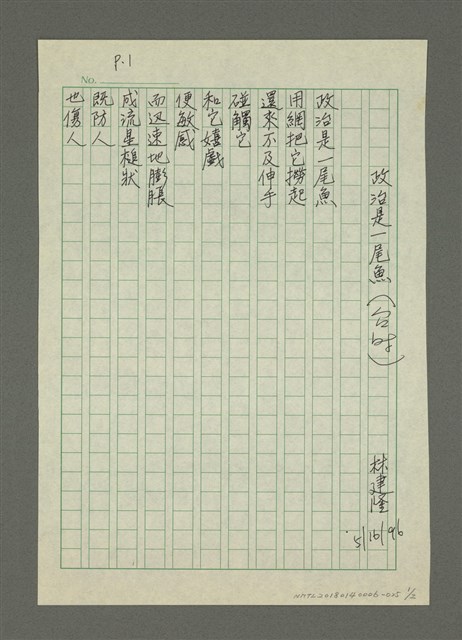 P.1
No.
政治是一尾魚（台时）
林建隆
5/16/96
政治是一尾魚
用網把它撈起
還來不及伸手
碰觸它
和它嬉戲
便敏感
而迅速地膨脹
成流星槌狀
既防人
也傷人
NMTL20180140006-025 1/2